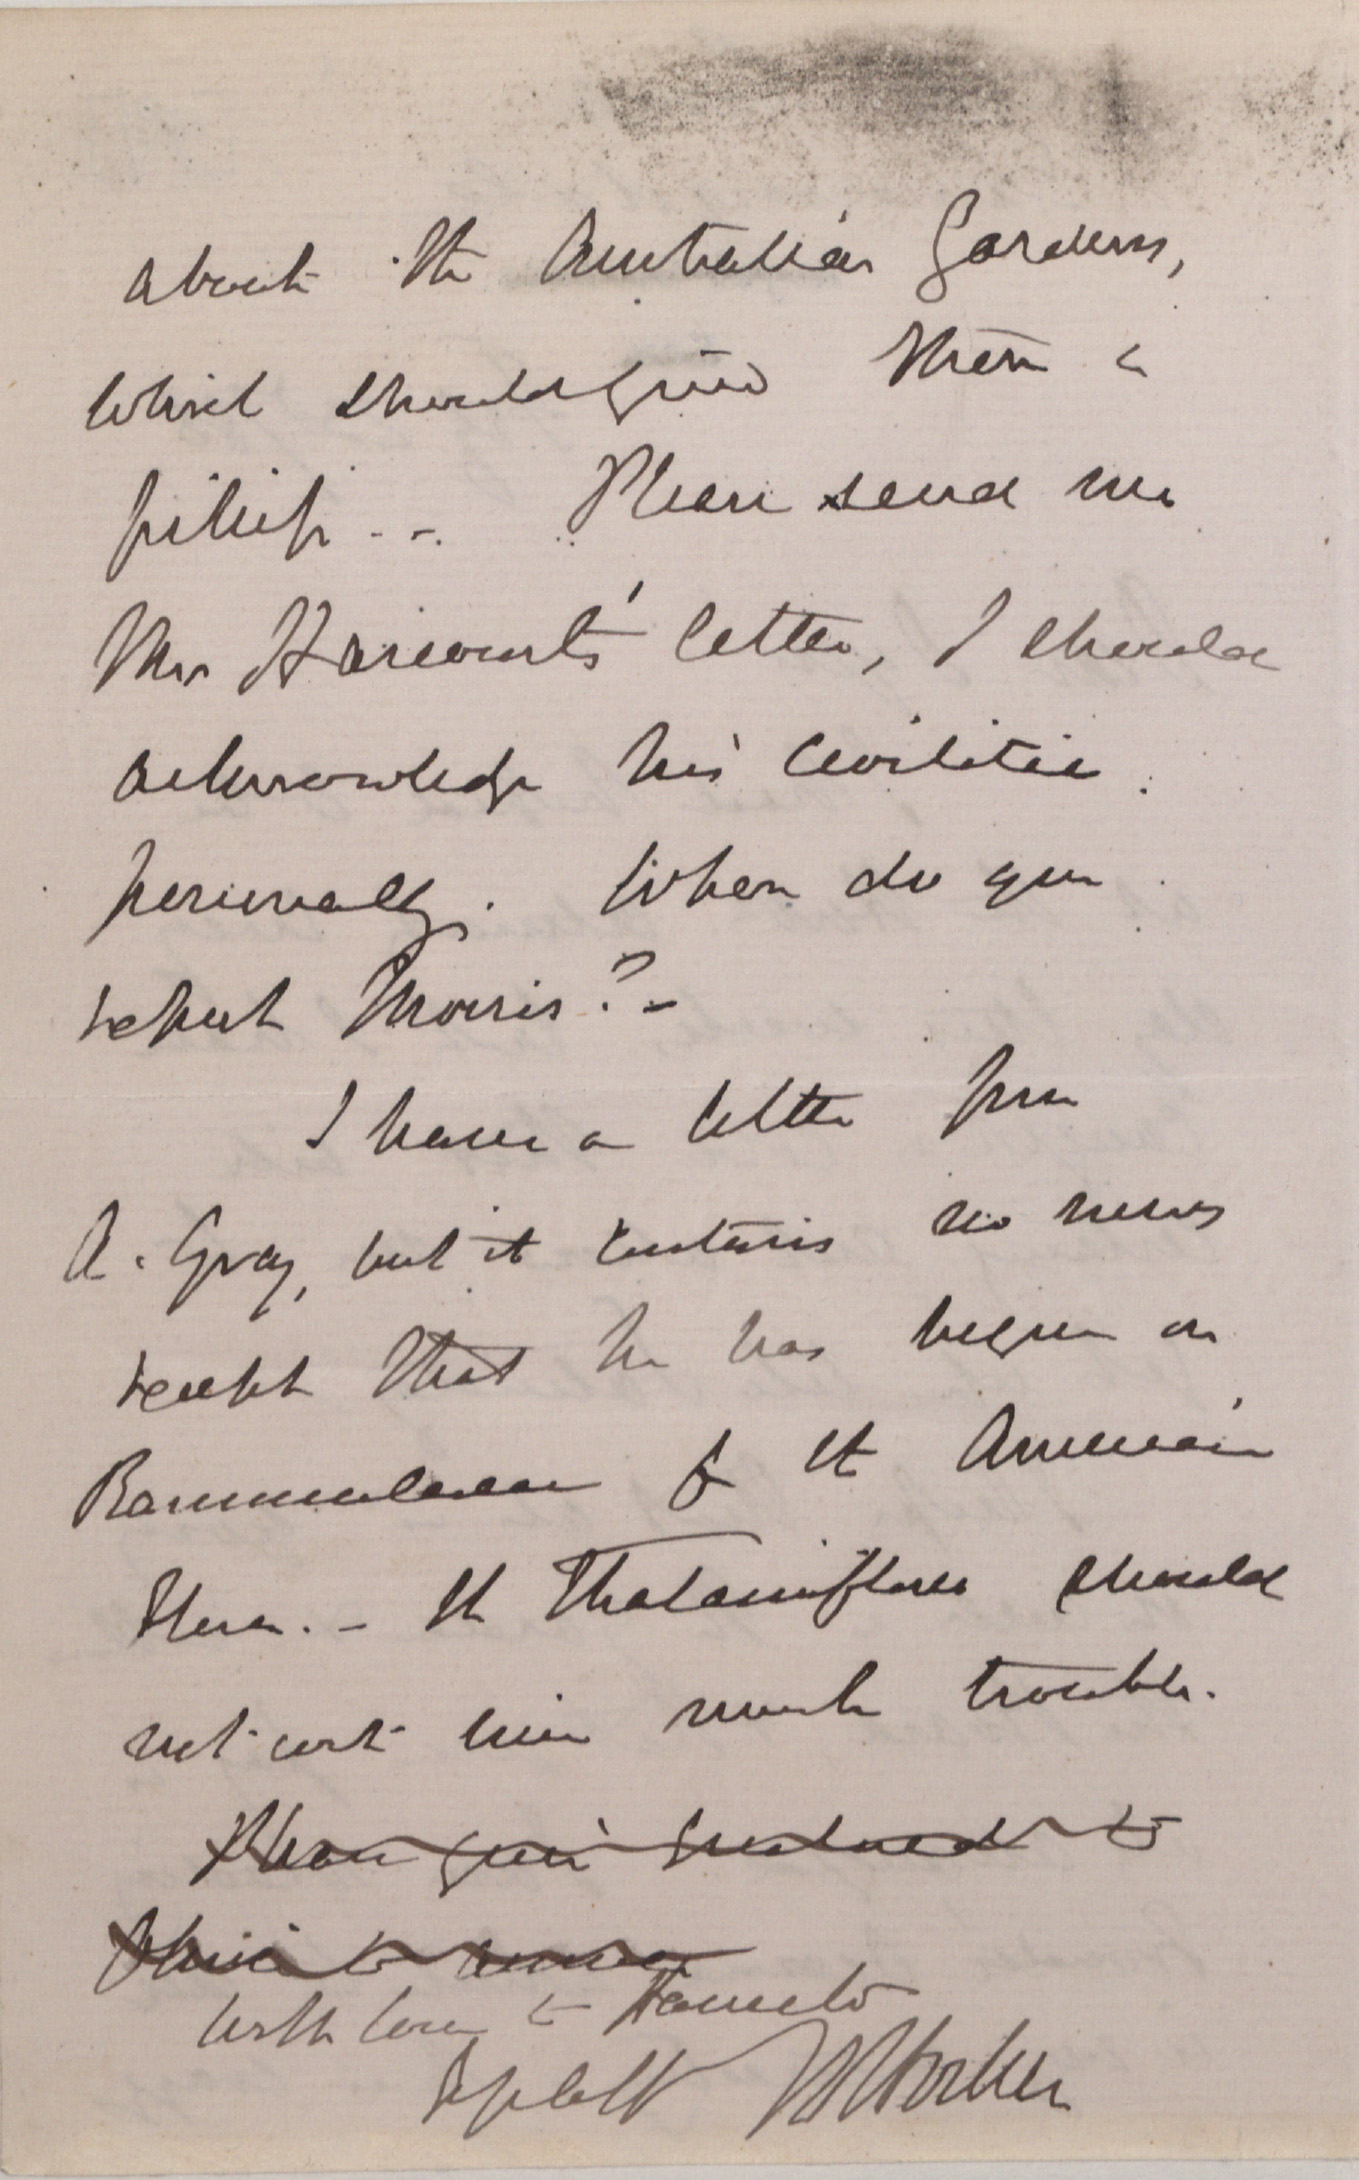 about the Australian Gardens,
which should give them a
fillip -- Please send me
Mr Harcourt's letter, I should
acknowledge his civilities
personally. When do you
expect Morris? -
I have a letter from
A. Gray, but it contains no news
except that he has begun on
Ranunculaceae of the American
Flora. - The Thalamiflorae should
not cost him much trouble.
Please give to
to
With love to Harriet
Yr aff JDHooker